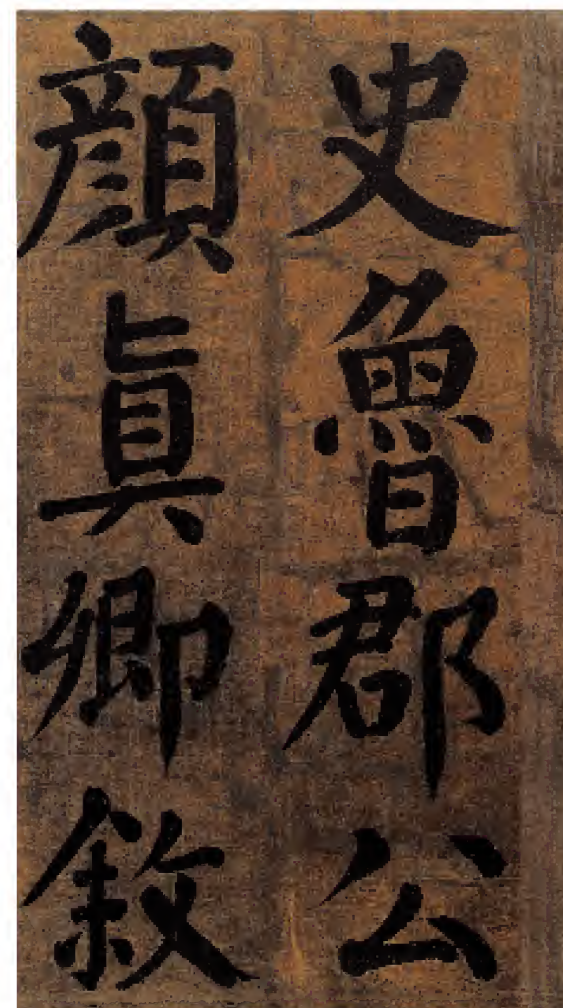 史魯郡公
顔眞卿敘